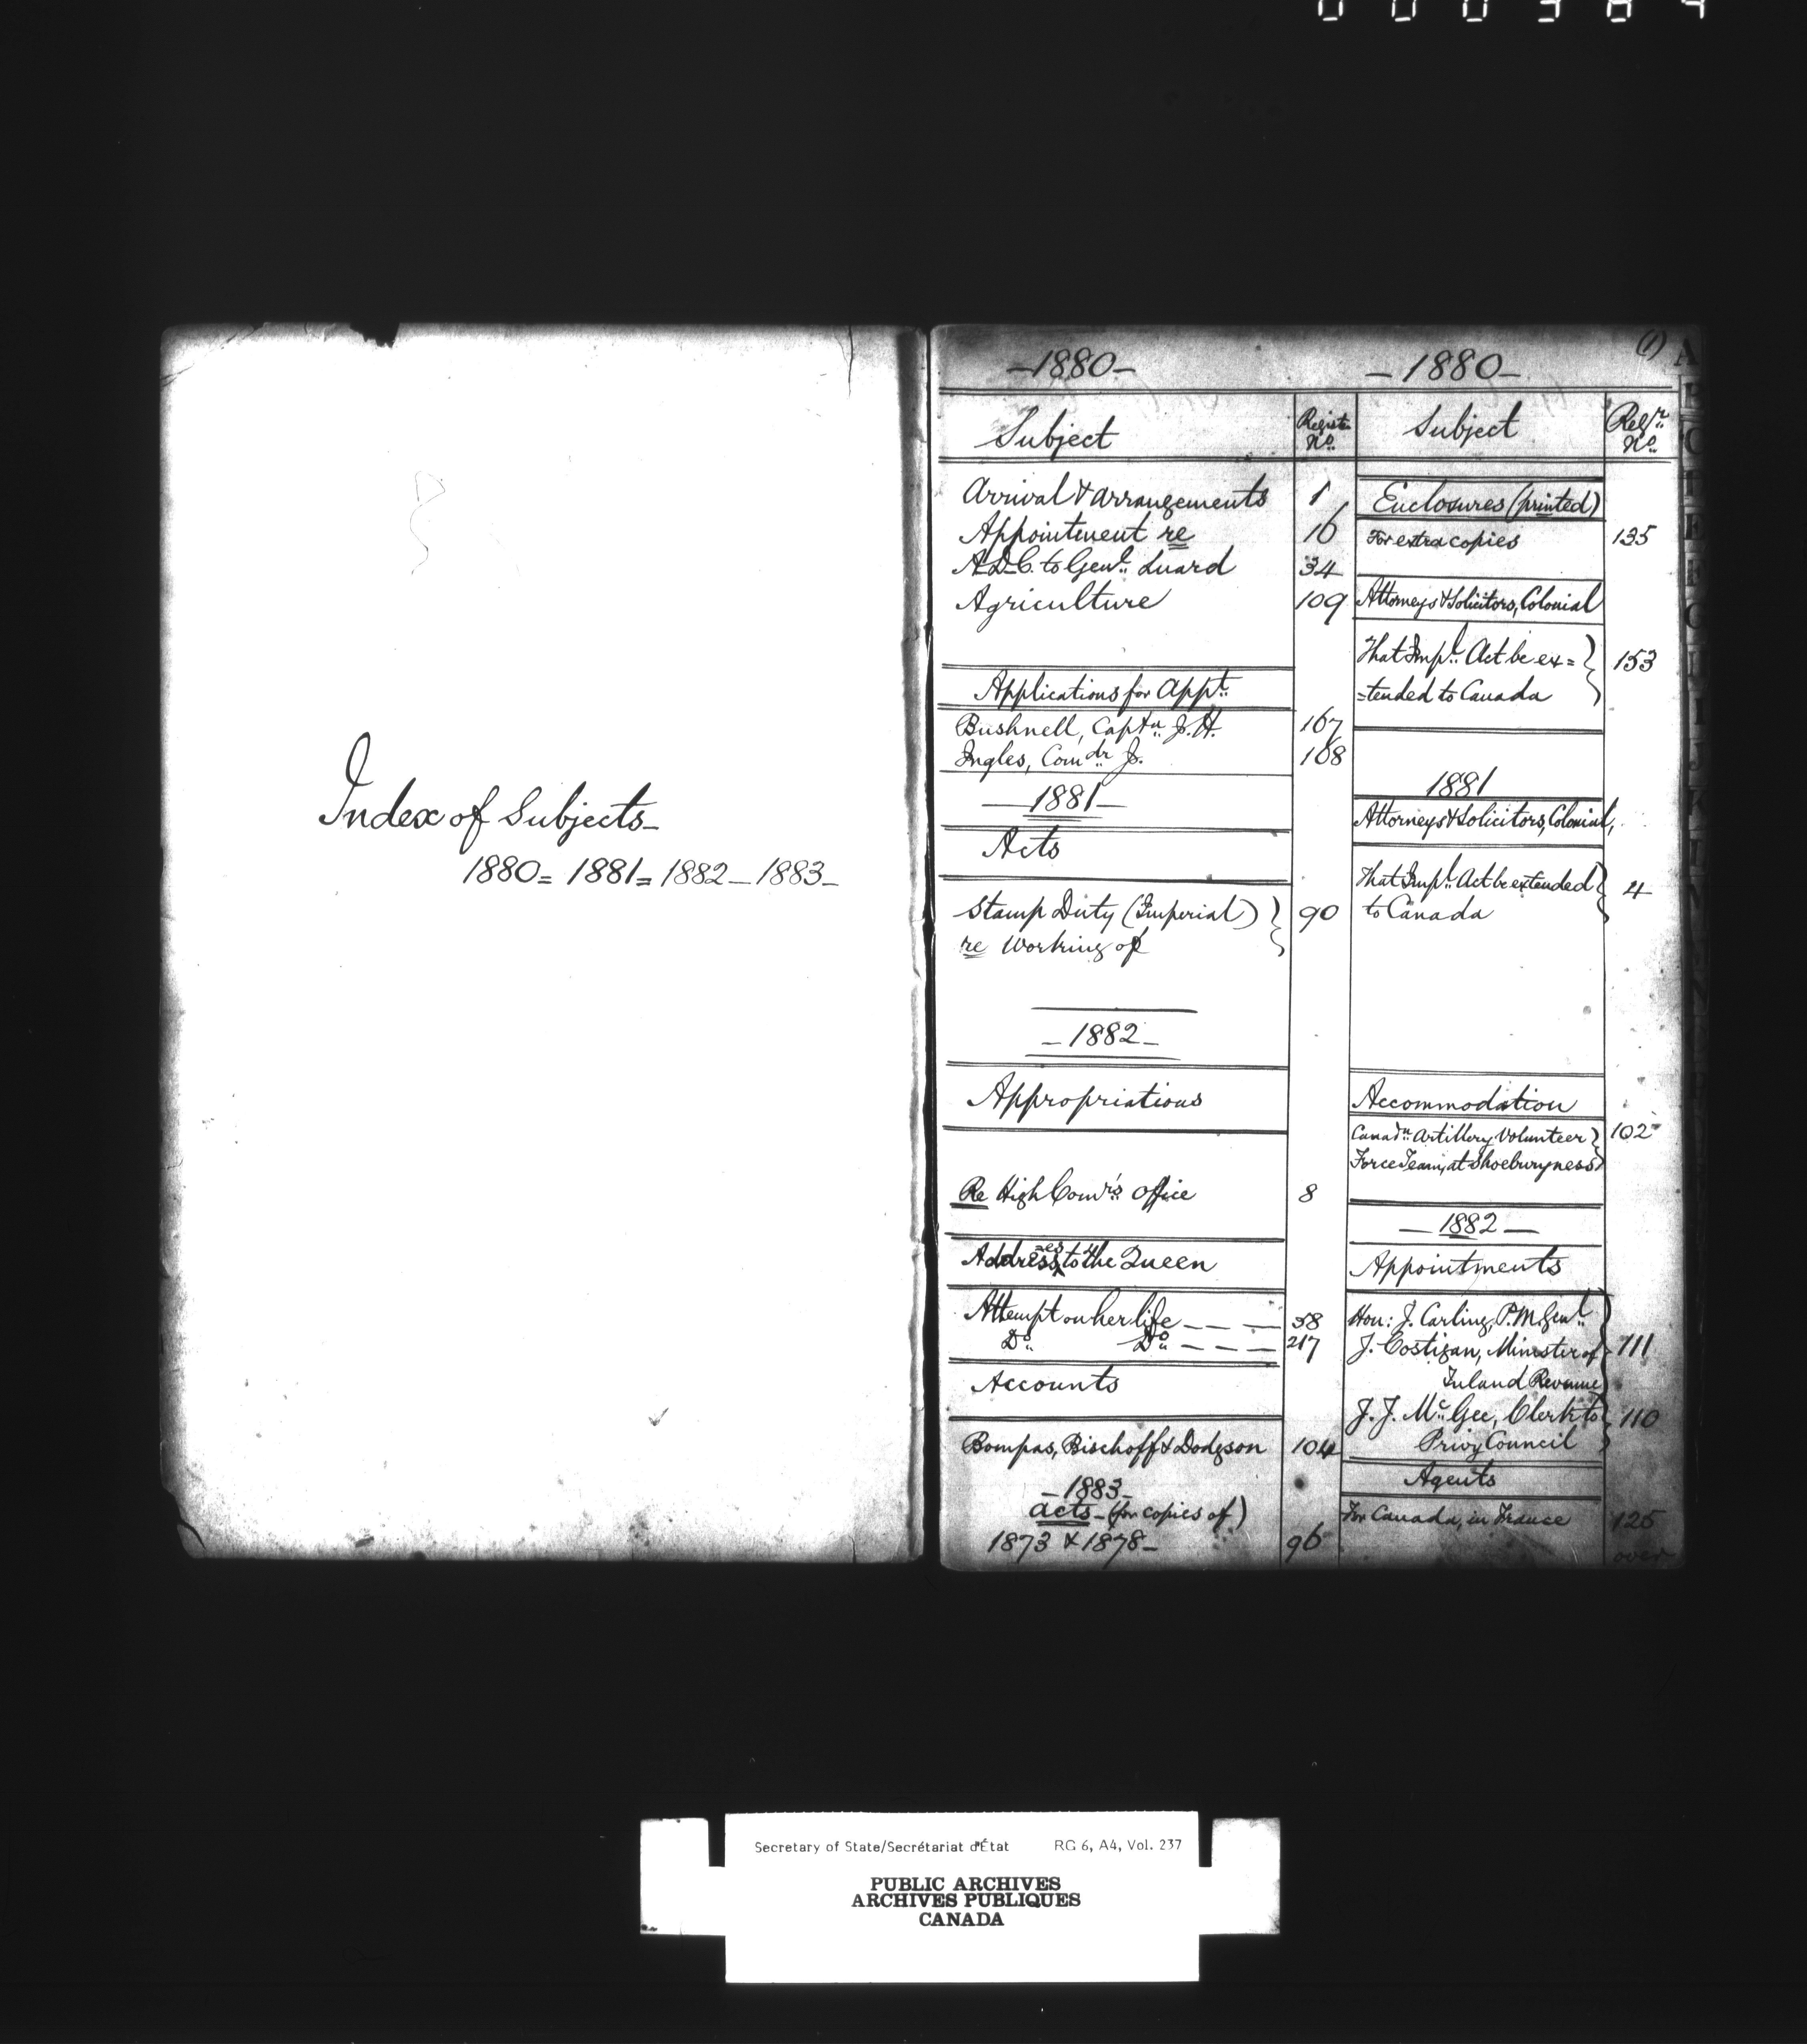 Index of Subjects_
1880= 1881= 1882_ 1883_
(1)
_1880_
Subject
Register No.
Arrival & arrangements 1
Appointment re 16
A.D.C. to Genl. Luard 34
Agriculture 109
Applications for Appt.
Bushnell, Captn. J.H. 167
Ingles, Comdr. J. 168
_1881_
Acts
Stamp Duty (Imperial) } 90
re Working of
_1882_
Appropriations
Re High Comr's. Office 8
Address=es to the Queen
Attempt on her life _ _ _ 58
Do. Do. _ _ _ 217
Accounts
Bompas, Bischoff & Dodgson 104
_1883_
Acts_ (for copies of)
1873 & 1878_ 96
_1880_
Subject
Regr. No.
Enclosures (printed)
For extra copies 135
Attorneys & Solicitors, Colonial
That Impl. Act be ex= } 153
=tended to Canada
1881
Attorneys & Solicitors, Colonial,
That Impl. Act be extended } 4
to Canada
Accommodation
Canadn. Artillery Volunteer } 102
Force Team, at Shoeburyness
_1882_
Appointments
Hon: J. Carling, P.M. Genl.
J. Costigan, Minister of } 111
Inland Revenue
J. J. McGee, Clerk to } 110
Privy Council
Agents
For Canada, in France 125
over
Secretary of State/Secrétariat d'État RG 6, A4, Vol. 237
PUBLIC ARCHIVES
ARCHIVES PUBLIQUES
CANADA